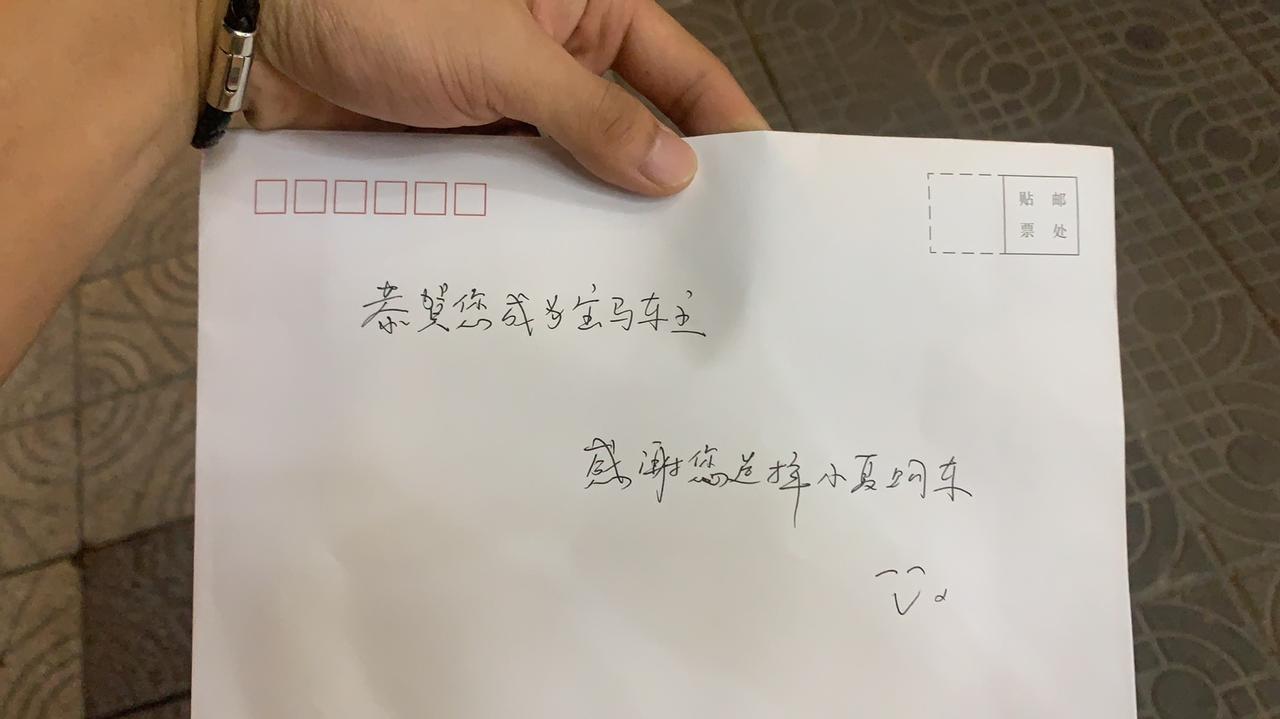 贴邮
票处
恭贺您成为宝马车主
感谢您选择小夏购车